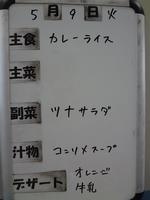 5月9日火
主食 カレーライス
主菜
副菜 ツナサラダ
汁物 コンソメスープ
デザート オレンジ
牛乳